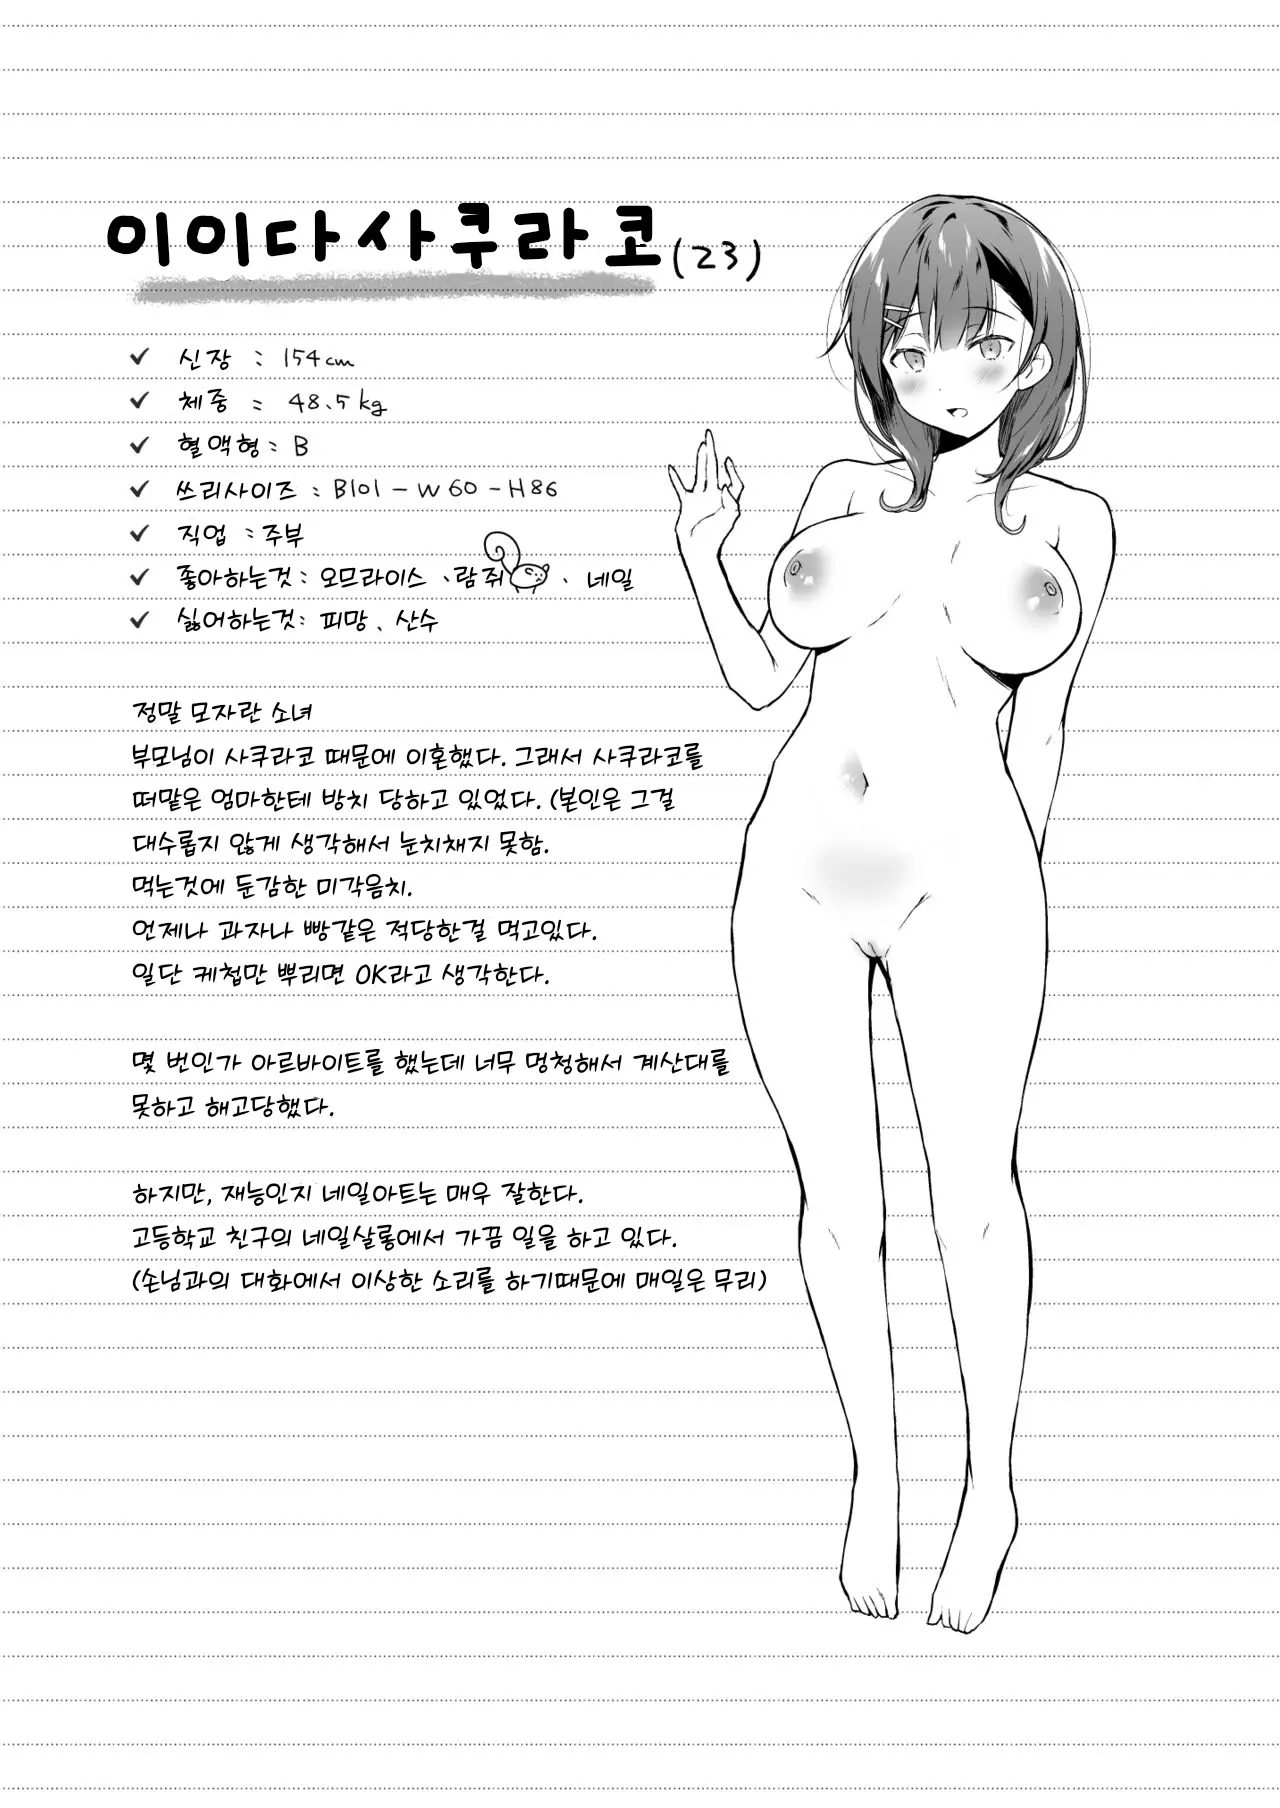 이이다사쿠라코(23)
✓ 신장 : 154cm
✓ 체중 : 48.5kg
✓ 혈액형 : B
✓ 쓰리사이즈 : B101-W60-H86
✓ 직업 : 주부
✓ 좋아하는것 : 오므라이스、람쥐、네일
✓ 싫어하는것 : 피망、산수
정말 모자란 소녀
부모님이 사쿠라코 때문에 이혼했다. 그래서 사쿠라코를
떠맡은 엄마한테 방치 당하고 있었다. (본인은 그걸
대수롭지 않게 생각해서 눈치채지 못함.
먹는것에 둔감한 미각음치.
언제나 과자나 빵같은 적당한걸 먹고있다.
일단 케첩만 뿌리면 OK라고 생각한다.
몇 번인가 아르바이트를 했는데 너무 멍청해서 계산대를
못하고 해고당했다.
하지만, 재능인지 네일아트는 매우 잘한다.
고등학교 친구의 네일살롱에서 가끔 일을 하고 있다.
(손님과의 대화에서 이상한 소리를 하기때문에 매일은 무리)